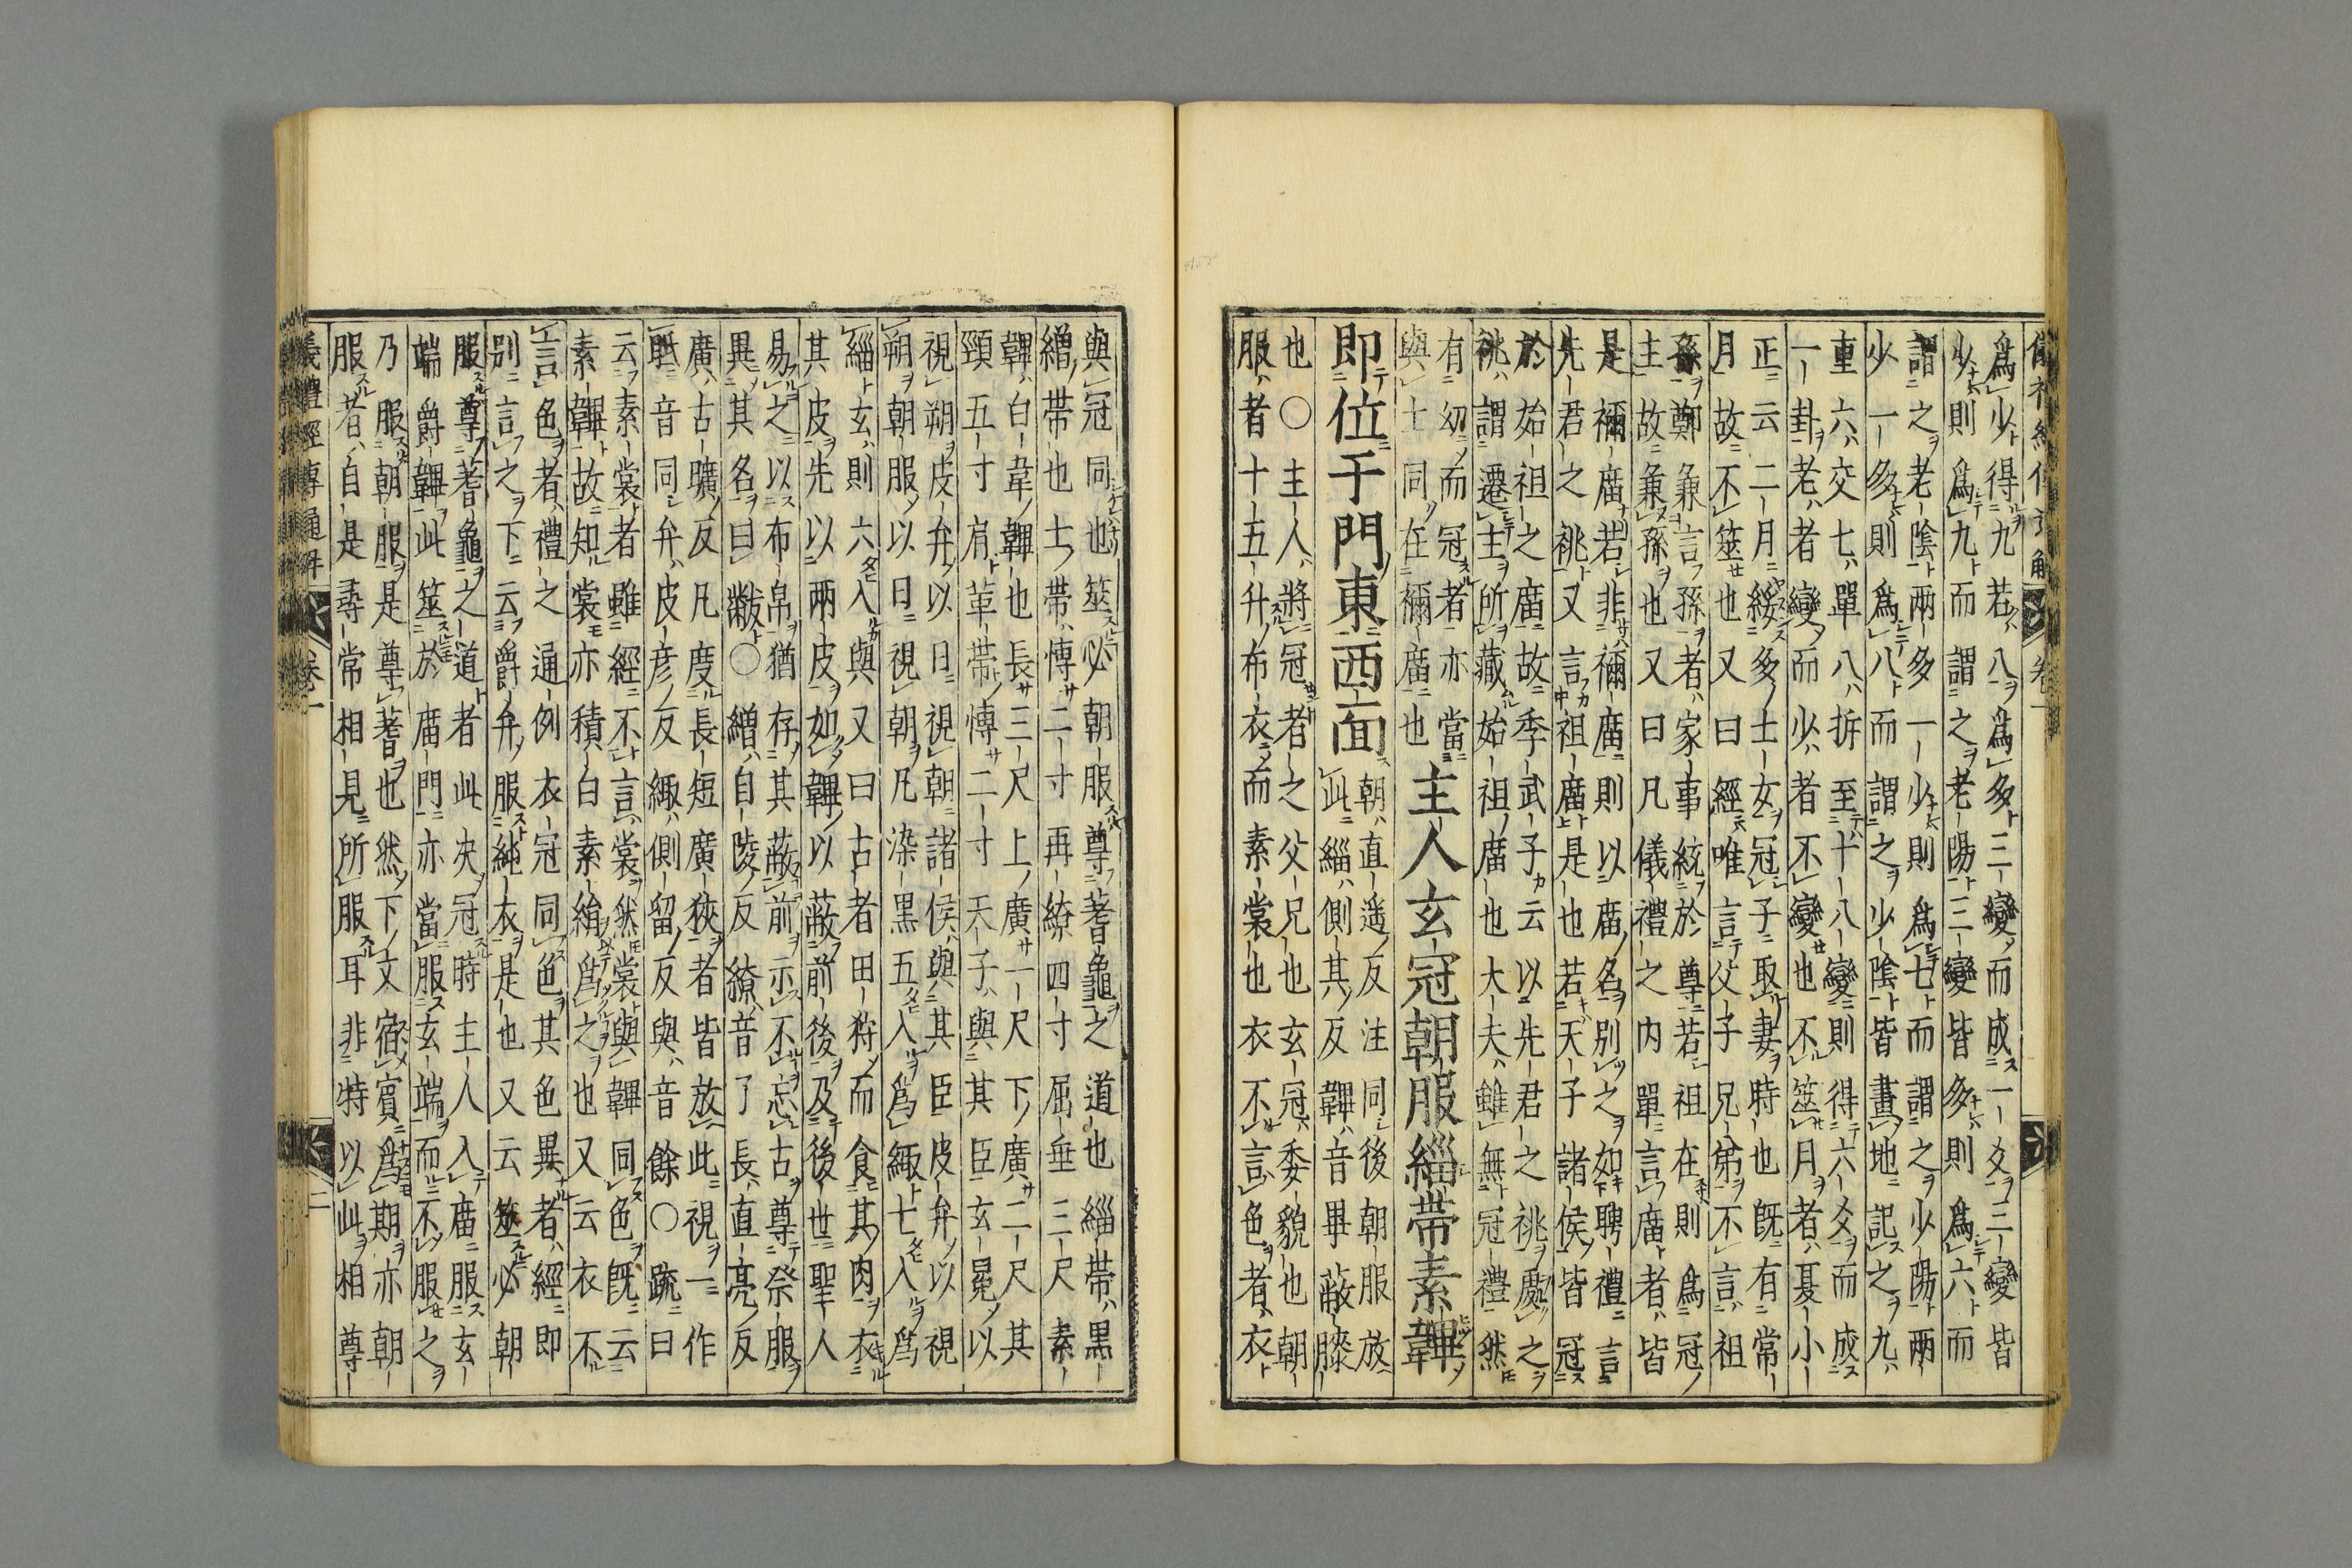 爲少得九若八爲多三變而成一爻三變皆
少則爲九而謂之老陽三變皆多則爲六而
謂之老陰兩多一少則爲七而謂之少陽兩
少一多則爲八而謂之少陰皆畫地記之九
重六交七單八拆至十八變則得六爻而成
一卦老者變而少者不變也不筮月者夏小
正云二月綏多士女冠子取妻時也既有常
月故不筮也又曰經唯言父子兄弟不言祖
孫鄭兼言孫者家事統於尊若祖在則爲冠
主故兼孫也又曰凡儀禮之內單言廟者皆
是禰廟若非禰廟則以廟名別之如聘禮言
先君之祧又言祖廟是也若天子諸侯皆冠
於始祖之廟故季武子云以先君之祧處之
祧謂遷主所藏始祖廟也大夫雖無冠禮然
有幼而冠者亦當
與士同在禰廟也
主人玄冠朝服緇帶素韠
即位于門東西面
朝直遥反注同後朝服放
此緇側其反韠音畢蔽膝
也○主人將冠者之父兄也玄冠委貌也朝
服者十五升布衣而素裳也衣不言色者衣
與冠同也筮必朝服尊蓍龜之道也緇帶黑
繒帶也士帶愽二寸再繚四寸屈垂三尺素
韠白韋韠也長三尺上廣一尺下廣二尺其
頸五寸肩革帶愽二寸天子與其臣玄冕以
視朔皮弁以日視朝諸侯與其臣皮弁以視
朔朝服以日視朝凡染黑五入爲緅七入爲
緇玄則六入與又曰古者田狩而食其肉衣
其皮先以兩皮如韠以蔽前後及後世聖人
易之以布帛猶存其蔽前示不忘古尊祭服
異其名曰黻○繒自陵反繚音了長直亮反
廣古曠反凡度長短廣狹者皆放此視一作
眡音同弁皮彦反緅側留反與音餘○疏曰
云素裳者雖經不言裳然裳與韠同色既云
素韠故知裳亦積白素絹爲之也又云衣不
言色者禮之通例衣冠同色其色異者經即
別言之下云爵弁服純衣是也又云筮必朝
服尊蓍龜之道者此决冠時主人入廟服玄
端爵韠此筮於廟門亦當服玄端而不服之
乃服朝服是尊蓍也然下文宿賓爲期亦朝
服者自是尋常相見所服耳非特以此相尊
儀禮經傳通解
卷一
二